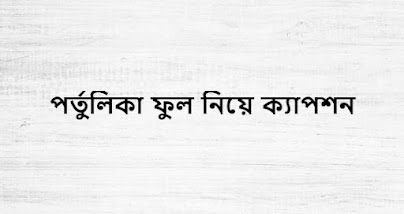 পর্তুলিকা ফুল নিয়ে ক্যাপশন